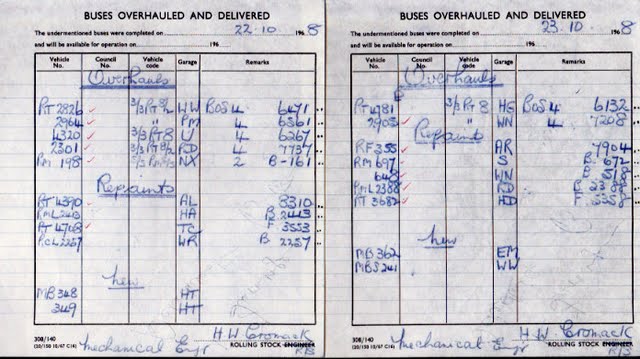 BUSES OVERHAULED AND DELIVERED
The undermentioned buses were completed on 22.10 1968
and will be available for operation on 196
Vehicle No. Council No. Vehicle code Garage Remarks
Overhauls
RT 2826 3/3 RT 8/2 WW BOS 4 6471
2964 " PM 4 6561
4320 3/3 RT 8 U 4 6267
2301 3/3 RT 8/2 RD 4 7737
RM 198 NX 2 B-161
Repaints
RT 4390 AL 8310
RML 2443 HA B 2443
RT 4708 TC F 3553
RCL 2257 WR B 2257
New
MB 348 HT
349 HT
308/140
(20/150 10/67 C14)
H.W. Cromack
Mechanical Engr ROLLING STOCK ENGINEER
BUSES OVERHAULED AND DELIVERED
The undermentioned buses were completed on 23.10 1968
and will be available for operation on 196
Vehicle No. Council No. Vehicle code Garage Remarks
Overhauls
RT 4781 3/3 RT 8 HG BOS 4 6132
2905 " WN 4 7208
Repaints
RF 355 AR 7904
RM 697 S B 672
648 WN B
RML 2388 RD B
RT 3682 HD F
New
MB 362 EM
MBS 241 WW
308/140
(20/150 10/67 C14)
H.W. Cromack
Mechanical Engr ROLLING STOCK ENGINEER